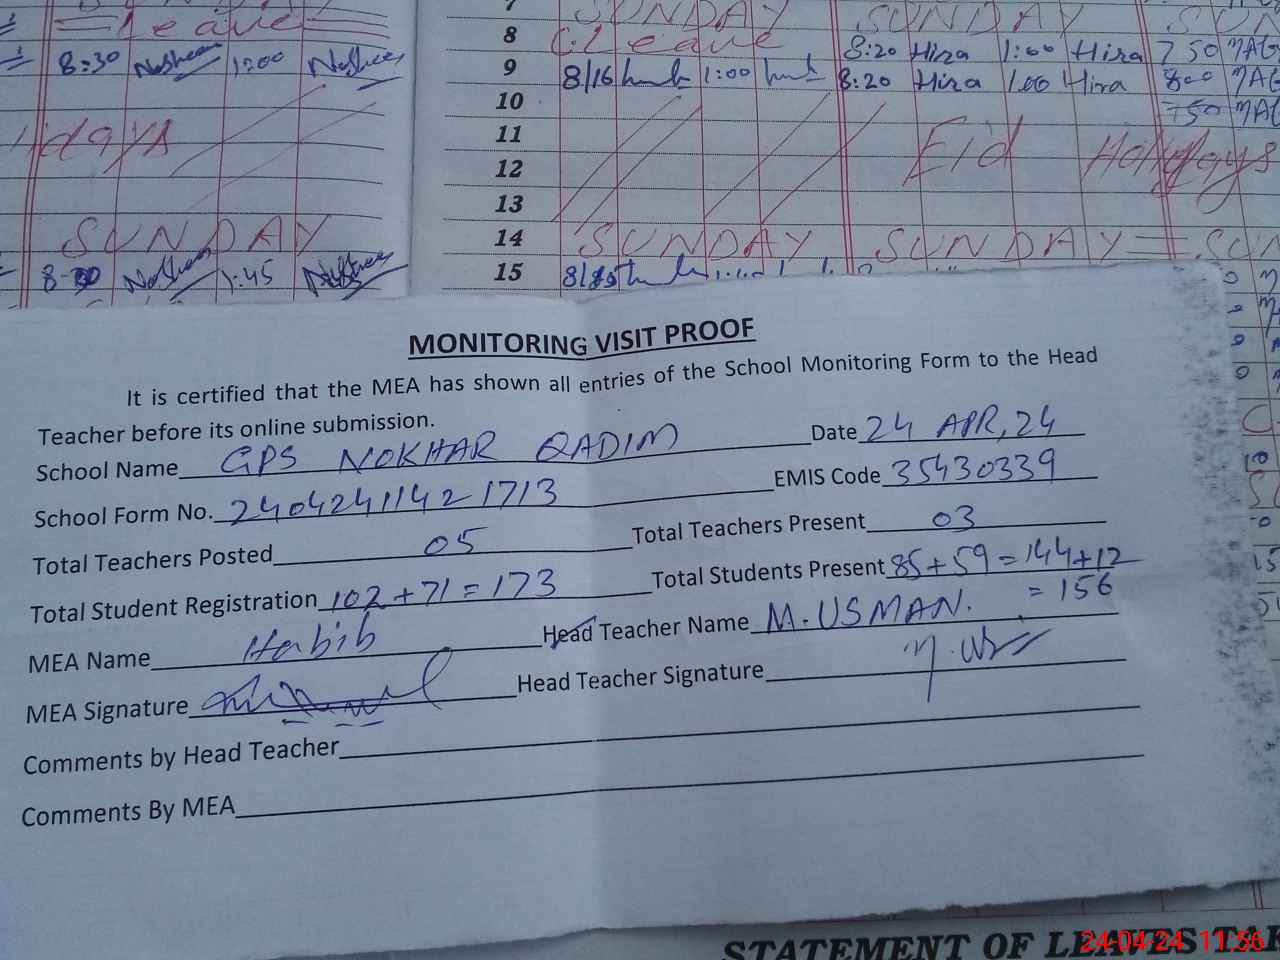 = Leave =
8:30 Nosheen 1:00 Nosheen
days
SUNDAY
Nosheen 1:45 Nosheen
7 SUNDAY SUNDAY SUN
8 C.Leave 8:20 Hira 1:00 Hira 750
9 8/16 1:00 8:20 Hira 1:00 Hira 800
10 750
11 Eid Holidays
12
13
14 SUNDAY SUNDAY = SUN
15
MONITORING VISIT PROOF
It is certified that the MEA has shown all entries of the School Monitoring Form to the Head
Teacher before its online submission.
School Name GPS NOKHAR QADIM Date 24 APR, 24
School Form No. 24042411421713 EMIS Code 35430339
Total Teachers Posted 05 Total Teachers Present 03
Total Student Registration 102+71=173 Total Students Present 85+59=144+12
=156
MEA Name Habib Head Teacher Name M. USMAN.
MEA Signature Head Teacher Signature
Comments by Head Teacher
Comments By MEA
STATEMENT OF LEAVES TAK
24-04-24 11:56